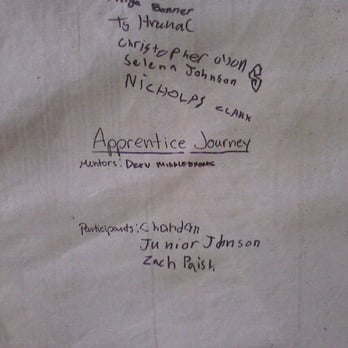 Bonner
Ty Hrunac
Christopher Olson
Selena Johnson
Nicholas Clark
Apprentice Journey
Mentors: Drew
Participants: Chandan
Junior Johnson
Zach Paish